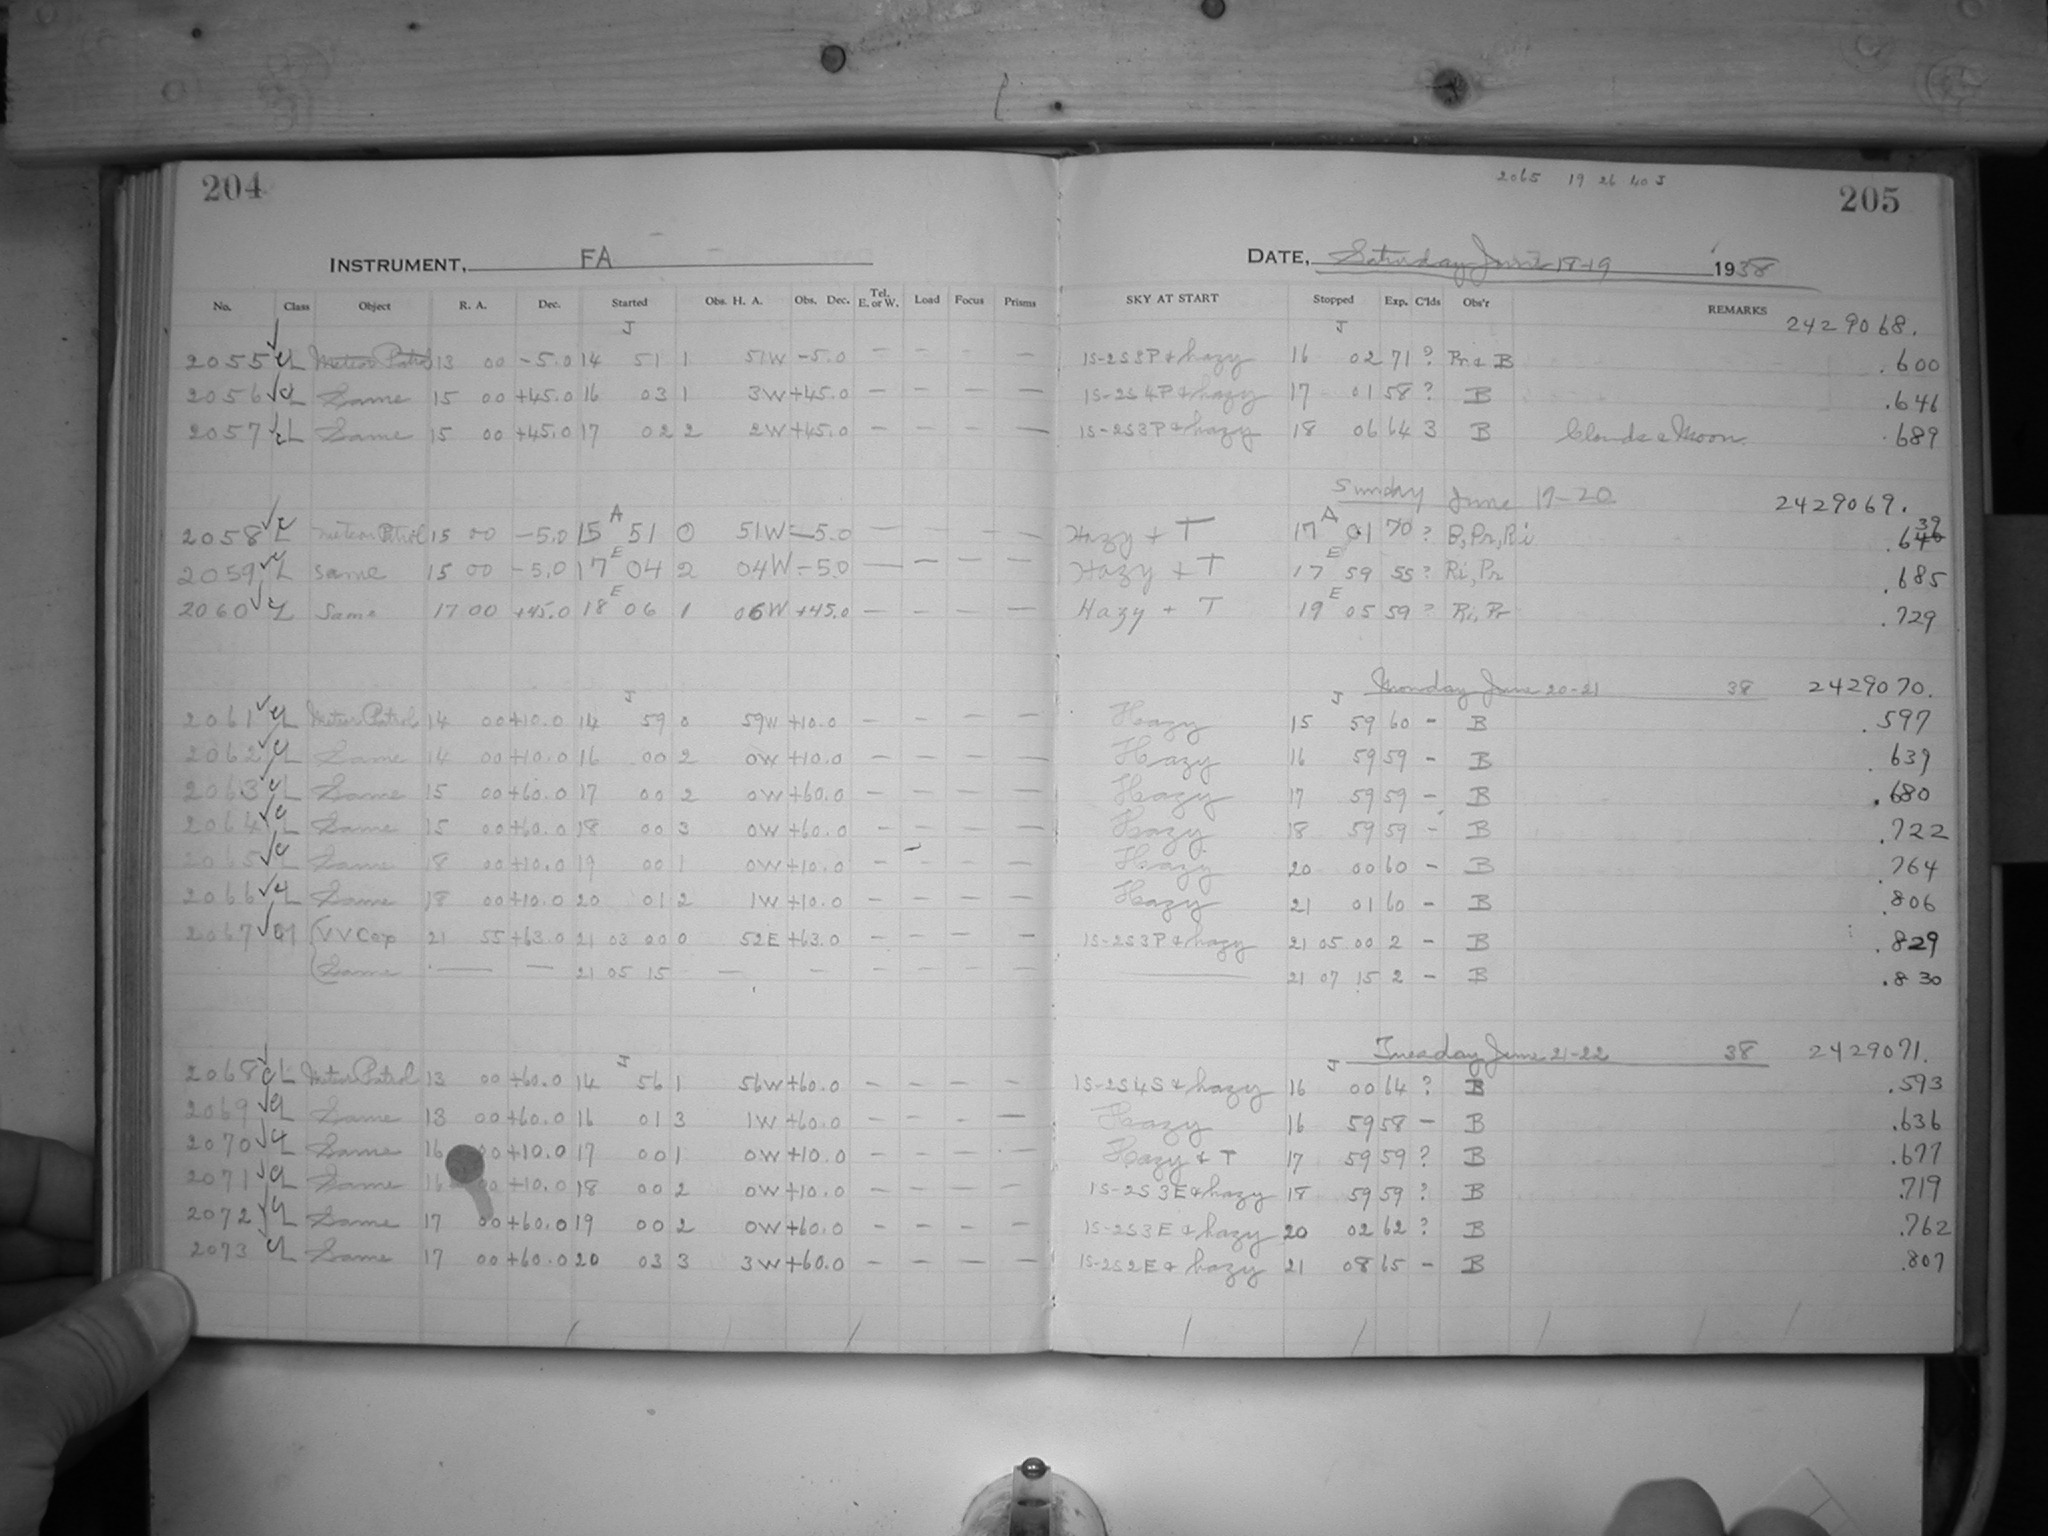 204
2065 19 26 40 J
205
INSTRUMENT, FA
DATE, Saturday June 18-19 1938
No. Class Object R. A. Dec. Started Obs. H. A. Obs. Dec. Tel. E. or W. Load Focus Prisms SKY AT START Stopped Exp. C'lds Obs'r REMARKS
J J 2429068.
2055 L Meteor Patrol 13 00 -5.0 14 51 1 51W -5.0 — — — — 1S-2S3P & hazy 16 02 71 ? Pr & B .600
2056 L Same 15 00 +45.0 16 03 1 3W +45.0 — — — — 1S-2S4P & hazy 17 01 58 ? B .646
2057 L Same 15 00 +45.0 17 02 2 2W +45.0 — — — — 1S-2S3P & hazy 18 06 64 3 B Clouds & Moon. .689
Sunday June 19-20 2429069.
A A 39
2058 L Meteor Patrol 15 00 -5.0 15 51 0 51W -5.0 — — — — Hazy + T 17 01 70 ? B, Pr, Ri .640
E E
2059 L Same 15 00 -5.0 17 04 2 04W -5.0 — — — — Hazy + T 17 59 55 ? Ri, Pr .685
E E
2060 L Same 17 00 +45.0 18 06 1 06W +45.0 — — — — Hazy + T 19 05 59 ? Ri, Pr .729
Monday June 20-21 38 2429070.
J J
2061 L Meteor Patrol 14 00 +10.0 14 59 0 59W +10.0 — — — — Hazy 15 59 60 - B .597
2062 L Same 14 00 +10.0 16 00 2 0W +10.0 — — — — Hazy 16 59 59 - B .639
2063 L Same 15 00 +60.0 17 00 2 0W +60.0 — — — — Hazy 17 59 59 - B .680
2064 L Same 15 00 +60.0 18 00 3 0W +60.0 — — — — Hazy 18 59 59 - B .722
2065 L Same 18 00 +10.0 19 00 1 0W +10.0 — — — — Hazy 20 00 60 - B .764
2066 L Same 18 00 +10.0 20 01 2 1W +10.0 — — — — Hazy 21 01 60 - B .806
2067 VV Cep 21 55 +63.0 21 03 00 0 52E +63.0 — — — — 1S-2S3P & hazy 21 05 00 2 - B .829
Same — — 21 05 15 — — — — — — — 21 07 15 2 - B .830
Tuesday June 21-22 38 2429071.
J J
2068 L Meteor Patrol 13 00 +60.0 14 56 1 56W +60.0 — — — — 1S-2S4S & hazy 16 00 64 ? B .593
2069 L Same 13 00 +60.0 16 01 3 1W +60.0 — — — — Hazy 16 59 58 - B .636
2070 L Same 16 00 +10.0 17 00 1 0W +10.0 — — — — Hazy & T 17 59 59 ? B .677
2071 L Same 16 00 +10.0 18 00 2 0W +10.0 — — — — 1S-2S3E & hazy 18 59 59 ? B .719
2072 L Same 17 00 +60.0 19 00 2 0W +60.0 — — — — 1S-2S3E & hazy 20 02 62 ? B .762
2073 L Same 17 00 +60.0 20 03 3 3W +60.0 — — — — 1S-2S2E & hazy 21 08 65 - B .807